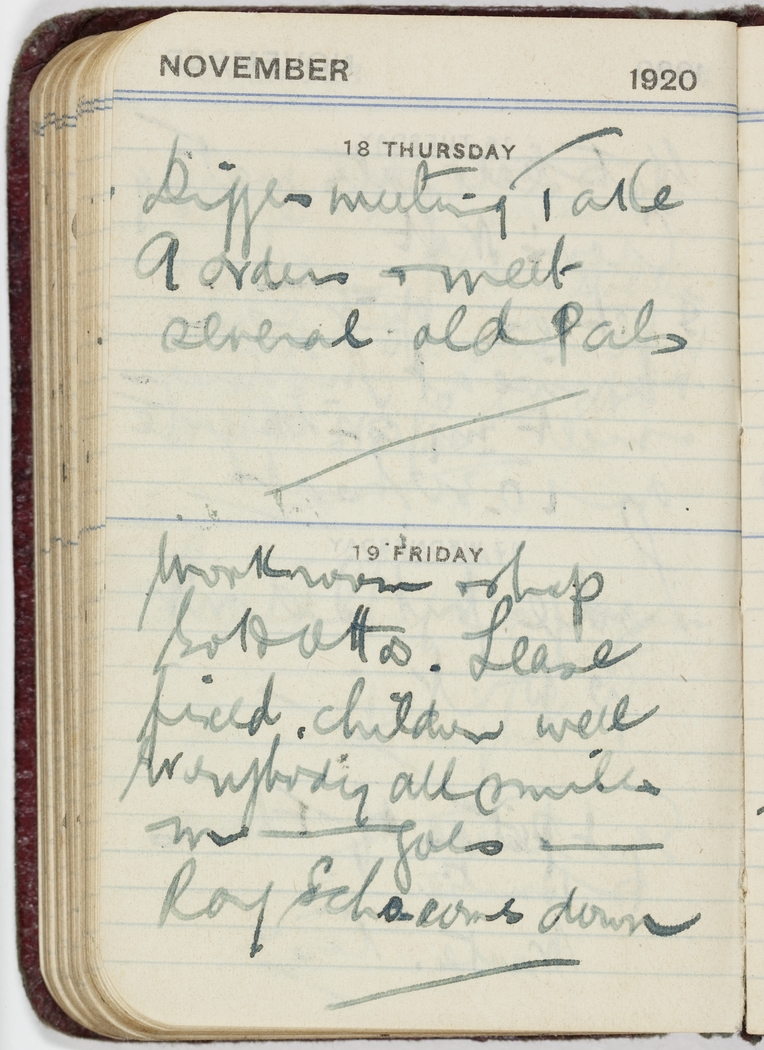 NOVEMBER 1920
18 THURSDAY
meeting Take
9 orders + meet
several old Pals
19 FRIDAY
Workroom + shop
Lease
fixed. children well
Everybody all smiles
goes
Roy comes down